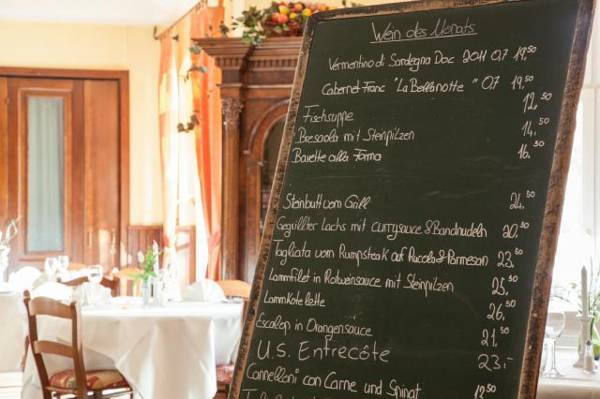 Wein des Monats
Vermentino di Sardegna Doc 2011 0,7 19,50
Cabernet Franc "La Bellanotte" 0,7 19,50
Fischsuppe 12,50
Bresaola mit Steinpilzen 14,50
Bavette alla Forma 16,50
Steinbutt vom Grill 24,50
Gegrillter Lachs mit Currysauce & Bandnudeln 20,50
Tagliata vom Rumpsteak auf Rucola & Parmesan 23,50
Lammfilet in Rotweinsauce mit Steinpilzen 25,50
Lammkotelette 26,50
Escalop in Orangensauce 21,50
U.S. Entrecôte 23,-
Cannelloni con Carne und Spinat 12,50